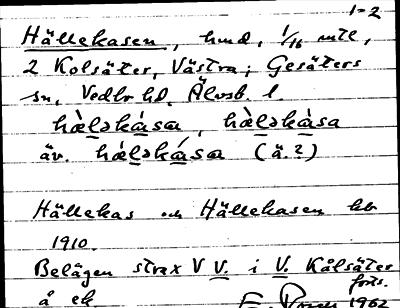 1-2
Hällekasen, hmd, 1/16 mtl,
2 Kolsäter, Västra; Gesäters
sn, Vedbo hd, Älvsb. l.
hæ̀ləkása, hæ̀ləkàsa
äv. hæ̀ləkása (ä.?)
Hällekas och Hällekasen kb
1910.
Belägen strax V V. i V. Kålsäter
forts.
å ek. 1962